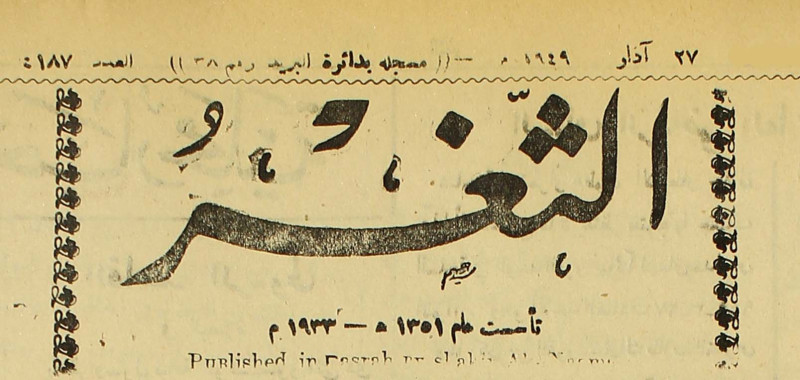 ٢٧ آذار ١٩٤٩ م — (( مسجله بدائرة البريد رقم ٣٨ )) العدد ٤١٨٧
الثغر
تأسست عام ١٣٥١ ه — ١٩٣٣ م
Published in Basrah by